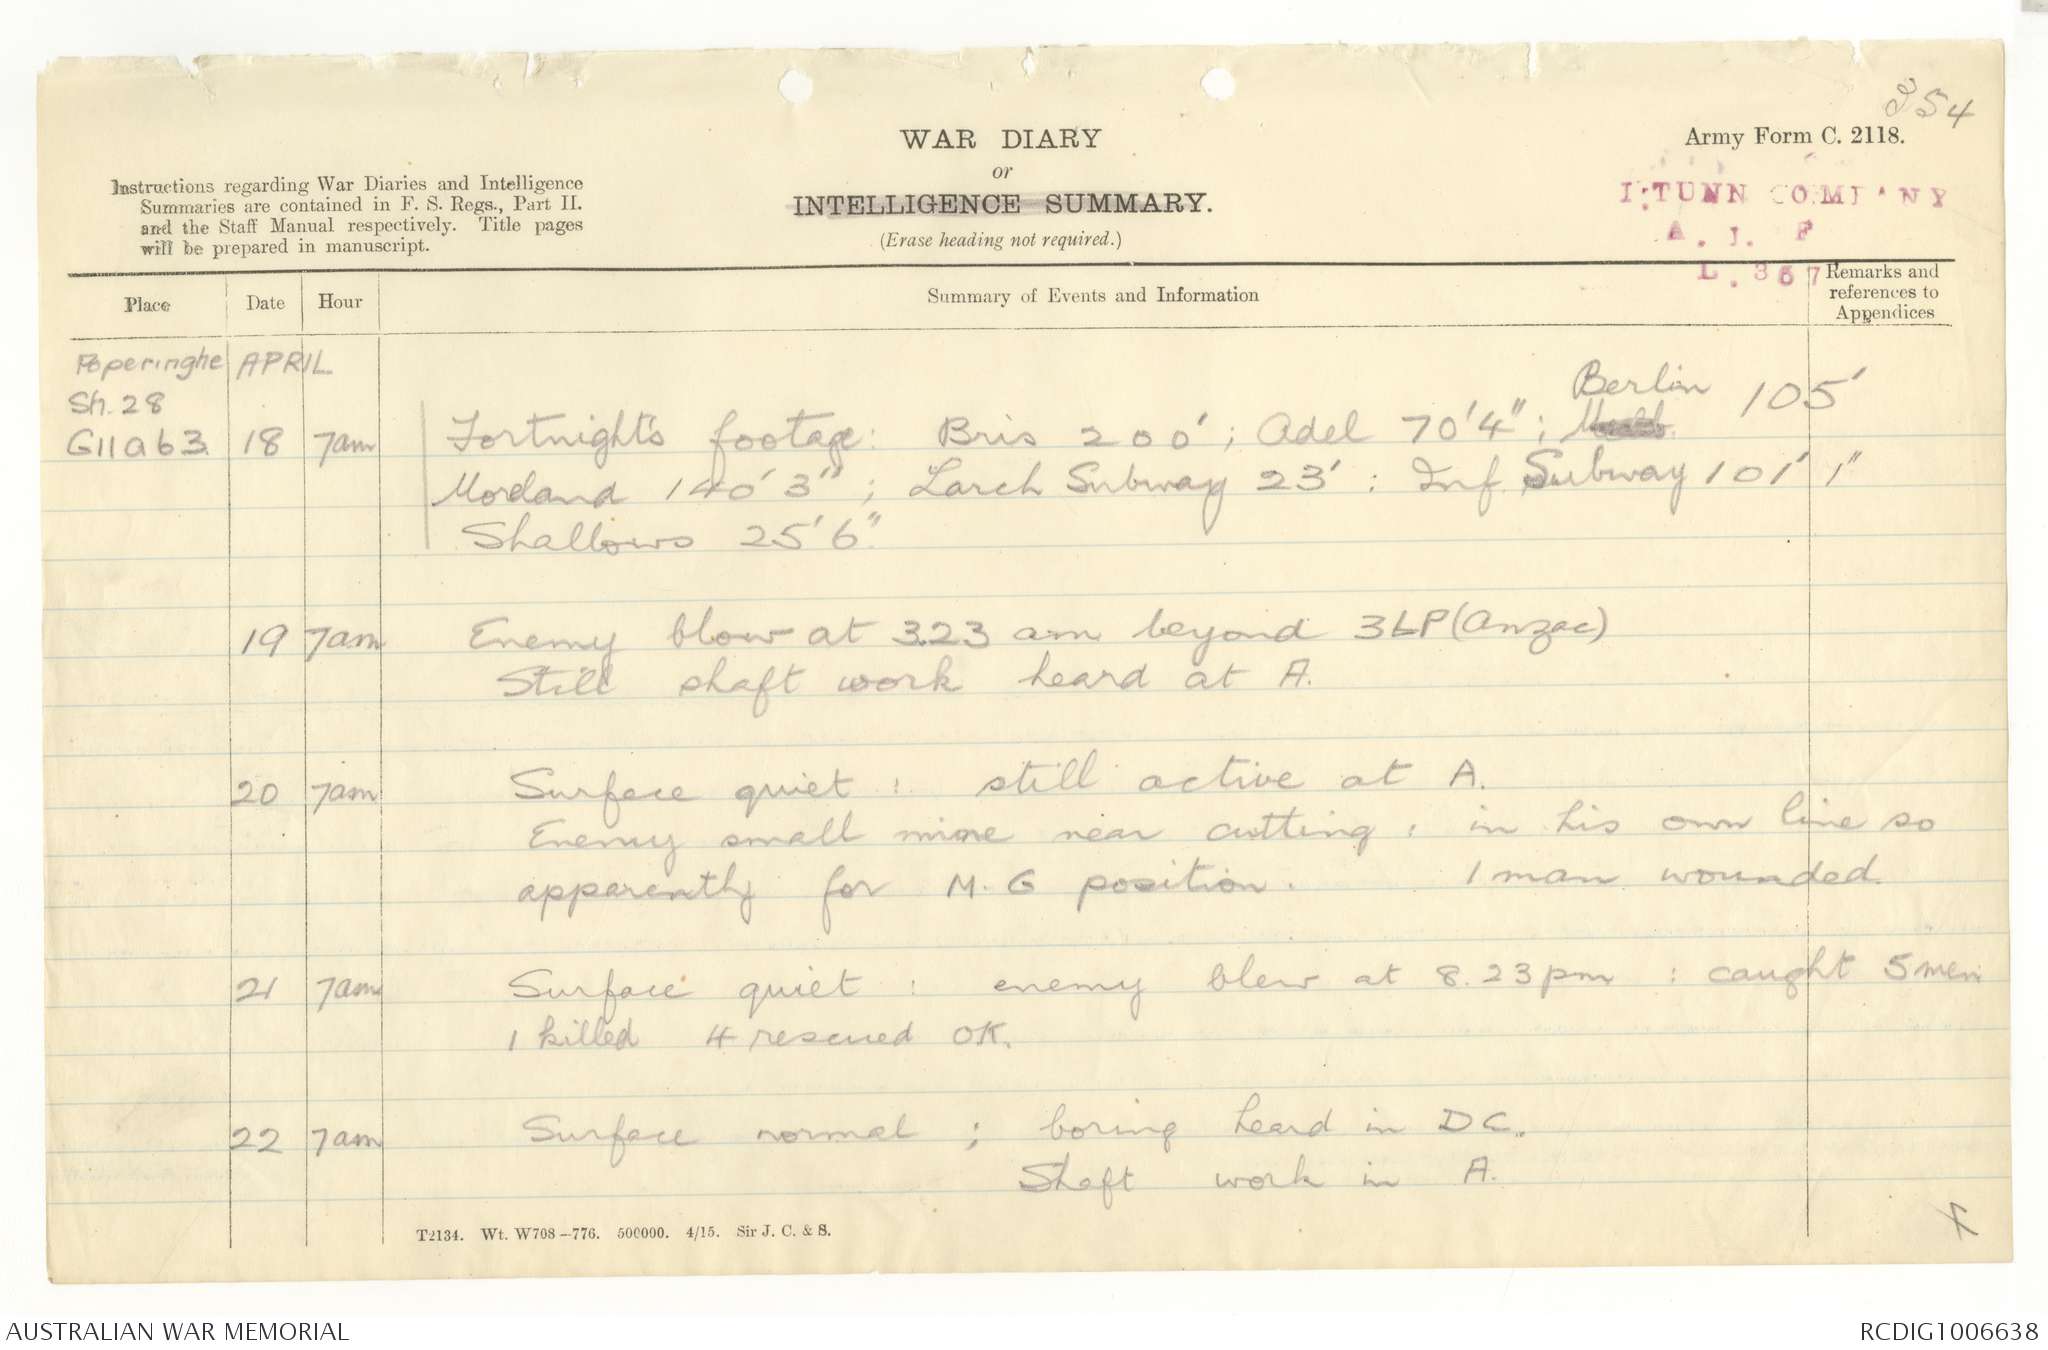 354
WAR DIARY
or
INTELLIGENCE SUMMARY.
(Erase heading not required.)
Army Form C. 2118.
Instructions regarding War Diaries and Intelligence
Summaries are contained in F. S. Regs., Part II.
and the Staff Manual respectively. Title pages
will be prepared in manuscript.
1. TUNN COMPANY
A. I. F
L. 367
Place Date Hour Summary of Events and Information Remarks and
references to
Appendices
Poperinghe APRIL
Sh. 28 Berlin 105'
G11a63. 18 7am Fortnight's footage: Bris 200'; Adel 70'4";
Moreland 140'3"; Larch Subway 23'; Inf. Subway 101' 1"
Shallows 25'6"
19 7am Enemy blow at 3.23 am beyond 3LP (Anzac)
Still shaft work heard at A.
20 7am Surface quiet: still active at A.
Enemy small mine near cutting: in his own line so
apparently for M. G position. 1 man wounded.
21 7am Surface quiet: enemy blew at 8.23pm: caught 5 men
1 killed 4 rescued OK.
22 7am Surface normal; boring heard in DC.
Shaft work in A.
T2134. Wt. W708—776. 500000. 4/15. Sir J. C. & S.
AUSTRALIAN WAR MEMORIAL RCDIG1006638